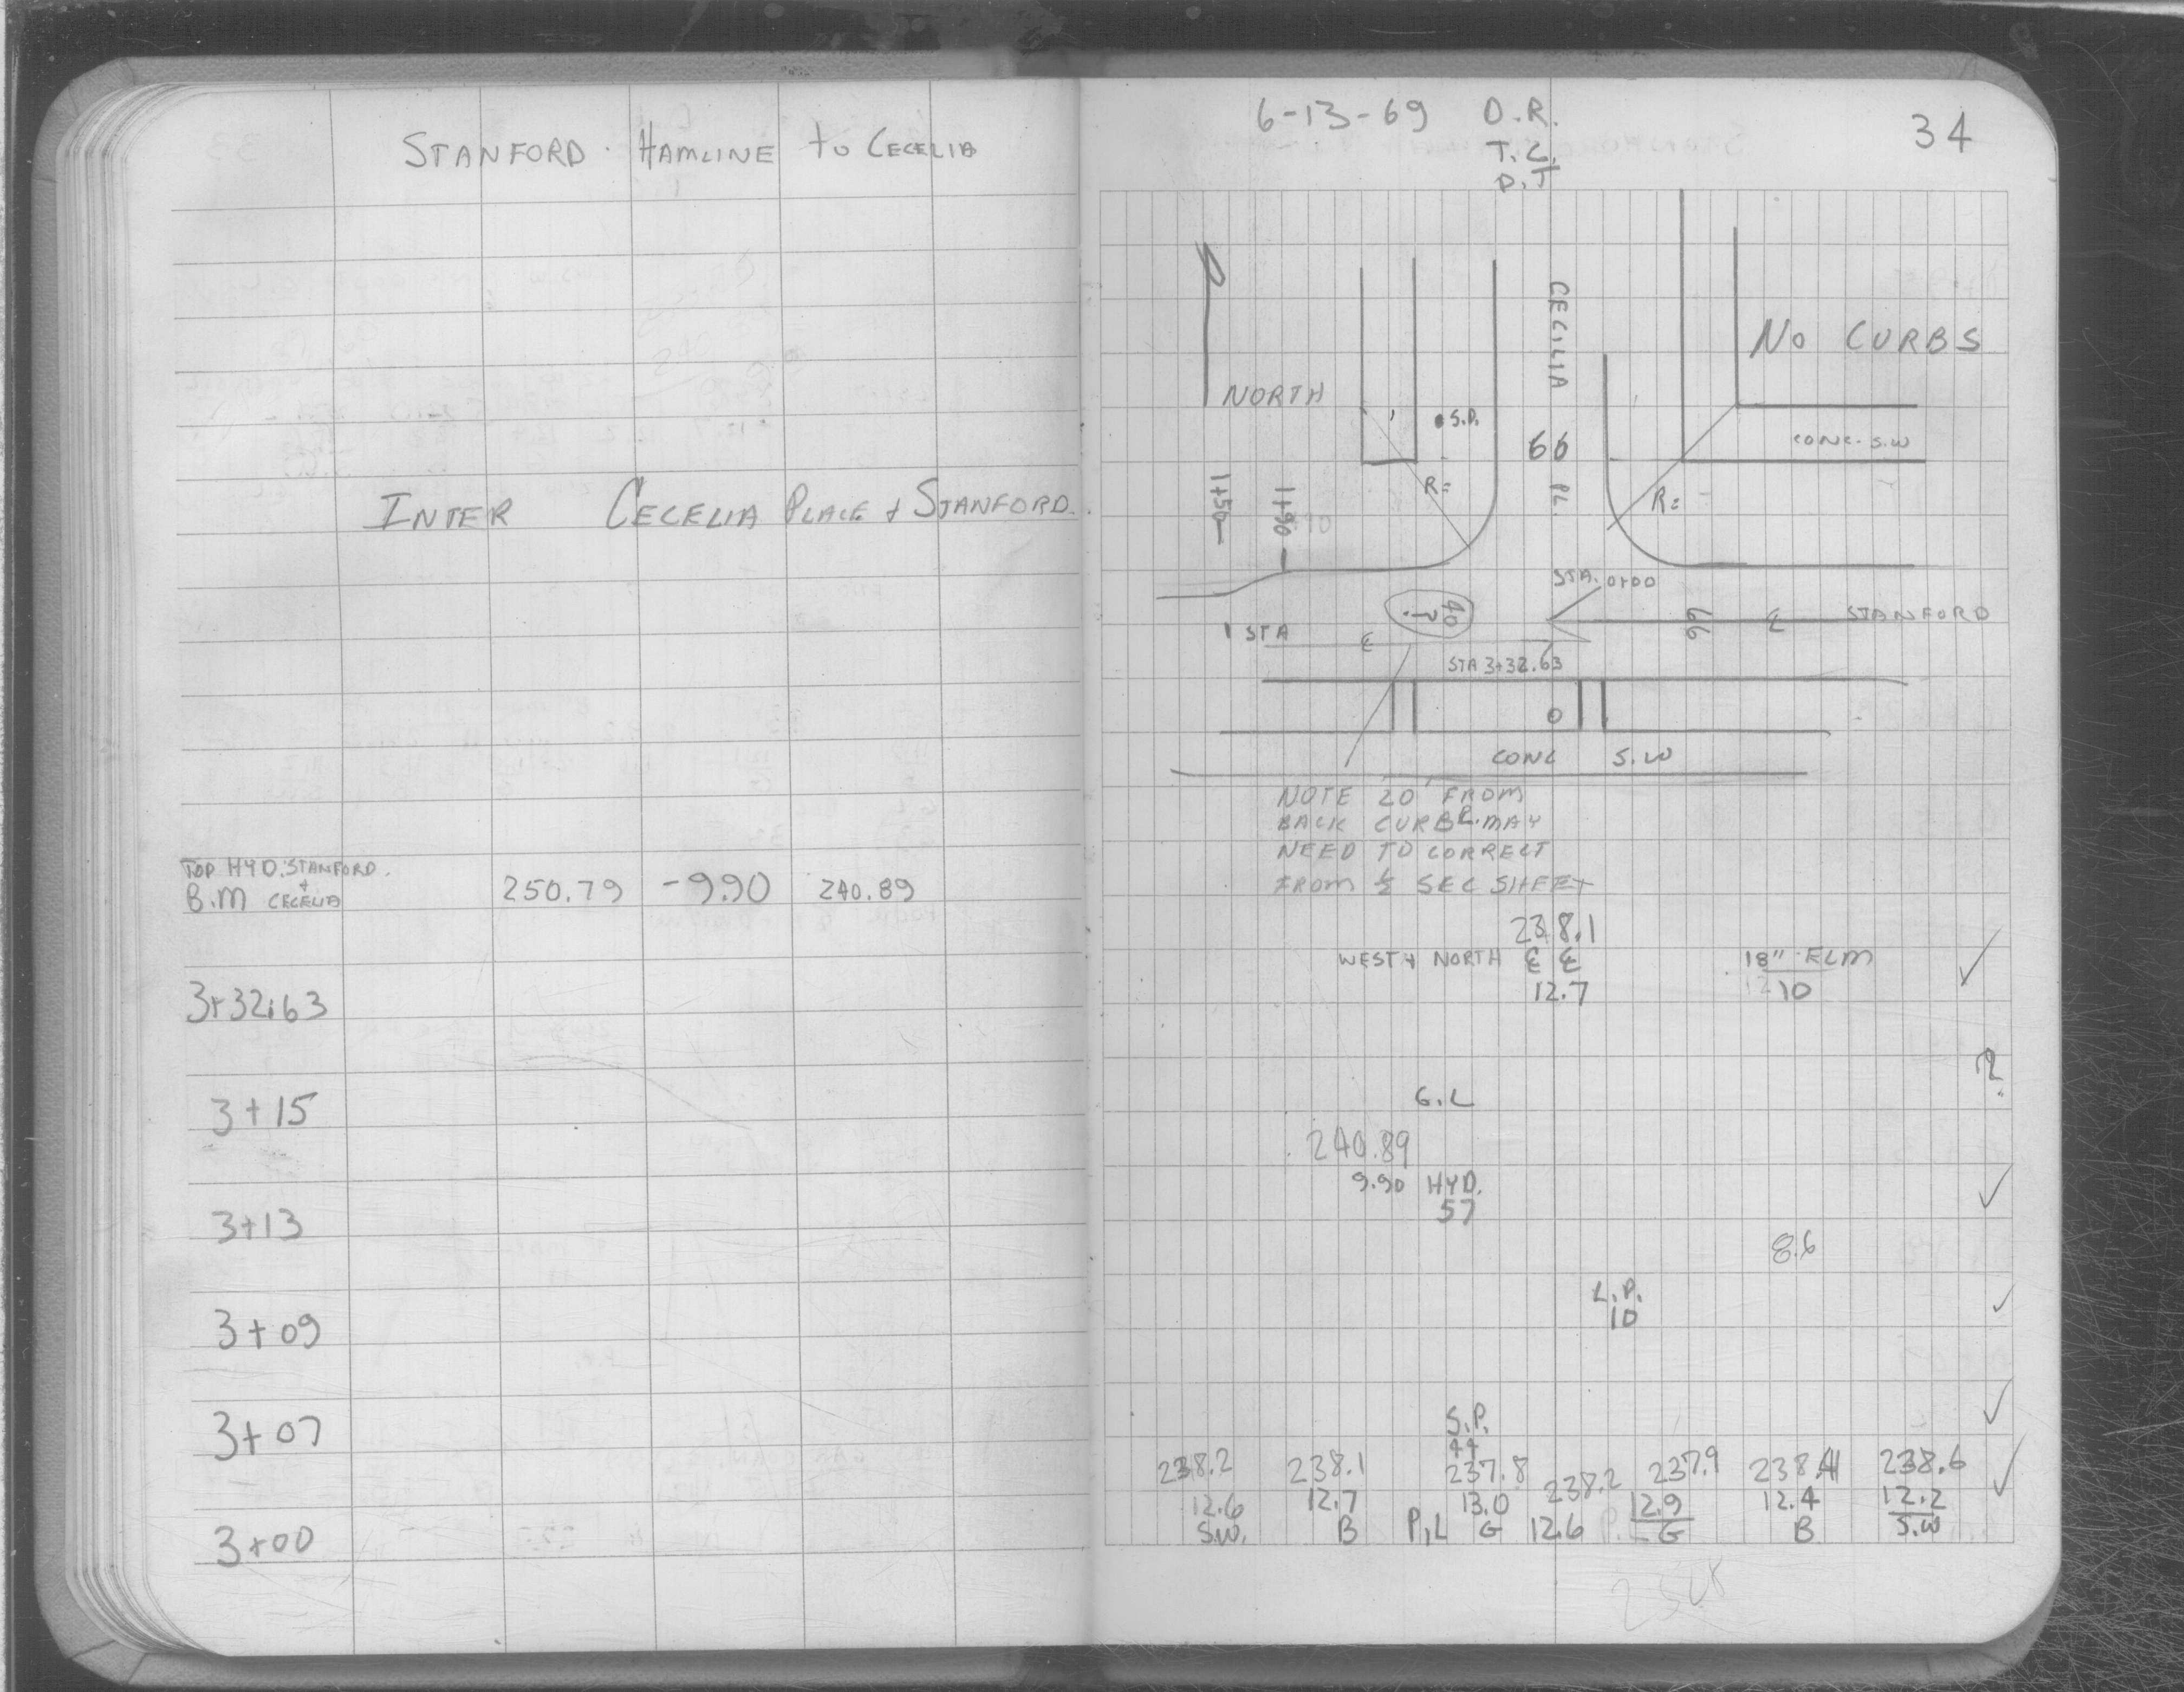 STANFORD. HAMLINE to CECELIA
INTER CECELIA PLACE + STANFORD.
TOP HYD. STANFORD.
+
B.M CECELIA 250.79 -9.90 240.89
3+32.63
3+15
3+13
3+09
3+07
3+00
6-13-69 D.R.
T.C.
D.J
34
NORTH
CECILIA 66 PL.
NO CURBS
S.P.
CONC. S.W
R=
R=
1+50
1+90
STA. 0+00
40
66
STANFORD
1 STA
STA 3+32.63
CONC S.W
NOTE 20' FROM
BACK CURB R. MAY
NEED TO CORRECT
FROM ½ SEC SHEET
238.1
WEST + NORTH
12.7
18" ELM
10
?
G.L
240.89
9.90 HYD.
57
8.6
L.P.
10
S.P.
44
238.2 238.1 237.8 238.2 237.9 238.4 238.6
12.6 12.7 13.0 12.9 12.4 12.2
S.W. B P.L G 12.6 G B S.W